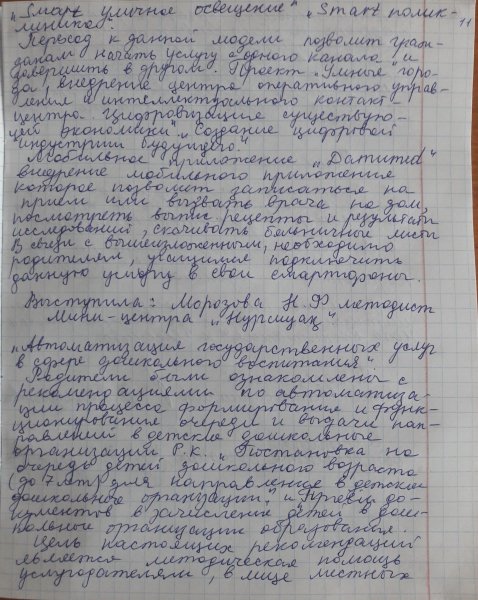 „Smart уличное освещение" „Smart полик-
линика".
11
Переход к данной модели позволит граж-
данам начать услугу с одного канала и
завершить в другом. Проект „Умные горо-
да", внедрение центра оперативного управ-
ления и интеллектуального контакт-
центра. Цифровизация существую-
щей экономики". „Создание цифровой
индустрии будущего".
Мобильное приложение „Damumed"
внедрение мобильного приложения
которое позволит записаться на
прием или вызвать врача на дом,
посмотреть выпис. рецепты и результаты
исследований, скачивать больничные листы
В связи с вышеизложенным, необходимо
родителям, учащимся подключить
данную услугу в свои смартфоны.
Выступила: Морозова Н.Ф методист
Мини-центра „Нурсиуақ"
„Автоматизация государственных услуг
в сфере дошкольного воспитания"
Родители были ознакомлены с
рекомендациями по автоматиза-
ции процесса формирования и функ-
ционирования очереди и выдачи нап-
равлений в детские дошкольные
организации Р.К. „Постановка на
очередь детей дошкольного возраста
(до 7 лет) для направления в детские
дошкольные организации." и „Прием до-
кументов и зачисление детей в дош-
кольные организации образования.
Цель настоящих рекомендаций
является методическая помощь
услугодателям, в лице местных